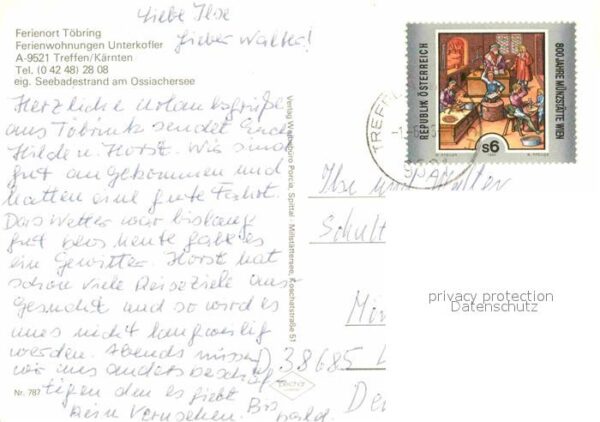 Liebe Ilse
Lieber Walter!
Ferienort Töbring
Ferienwohnungen Unterkofler
A-9521 Treffen/Kärnten
Tel. (0 42 48) 28 08
eig. Seebadestrand am Ossiachersee
Herzliche Urlaubsgrüße
aus Töbring sendet Euch
Hilde u. Horst. Wir sind
gut angekommen und
hatten eine gute Fahrt.
Das Wetter war bislang
gut bis heute gab es
ein Gewitter. Horst hat
schon viele Reiseziele aus
Gesucht und so wird es
uns nicht langweilig
werden. Abends müssen
wir uns anders beschäf
tigen den es giebt
kein Fernsehen. Bis
bald.
Nr. 787
Verlag Wallenboro Porcia, Spittal - Millstättersee, Koschatstraße 51
REPUBLIK ÖSTERREICH
800 JAHRE MÜNZSTÄTTE WIEN
S6
TREFFEN
Ilse und Walter
Schult
Min
D 38685 L
De
privacy protection
Datenschutz